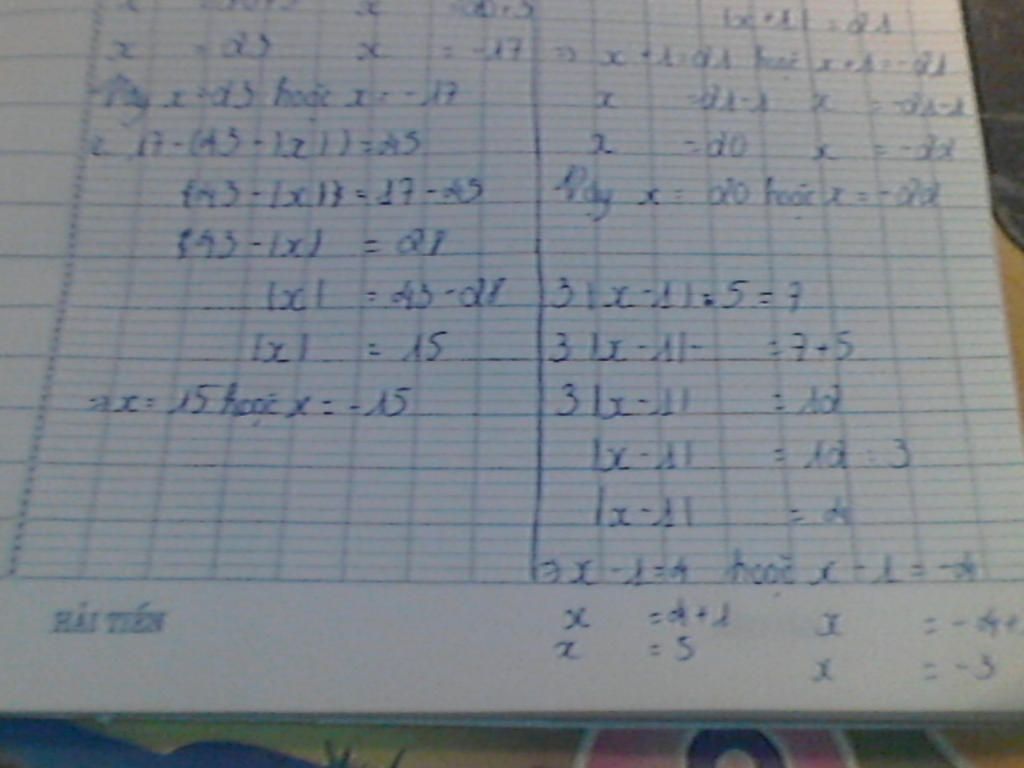 x = 23 x = -17
Vậy x = 23 hoặc x = -17
17-(43-|x|)=45
(43-|x|) = 17-45
43-|x| = 28
|x| = 43-28
|x| = 15
⇒ x = 15 hoặc x = -15
|x+1| = 21
⇒ x+1=21 hoặc x+1=-21
x =21-1 x =-21-1
x =20 x =-22
Vậy x = 20 hoặc x = -22
3|x-1|-5=7
3|x-1| =7+5
3|x-1| =12
|x-1| =12:3
|x-1| =4
⇒ x-1=4 hoặc x-1=-4
x =4+1 x =-4+
x =5 x =-3
HẢI TIẾN